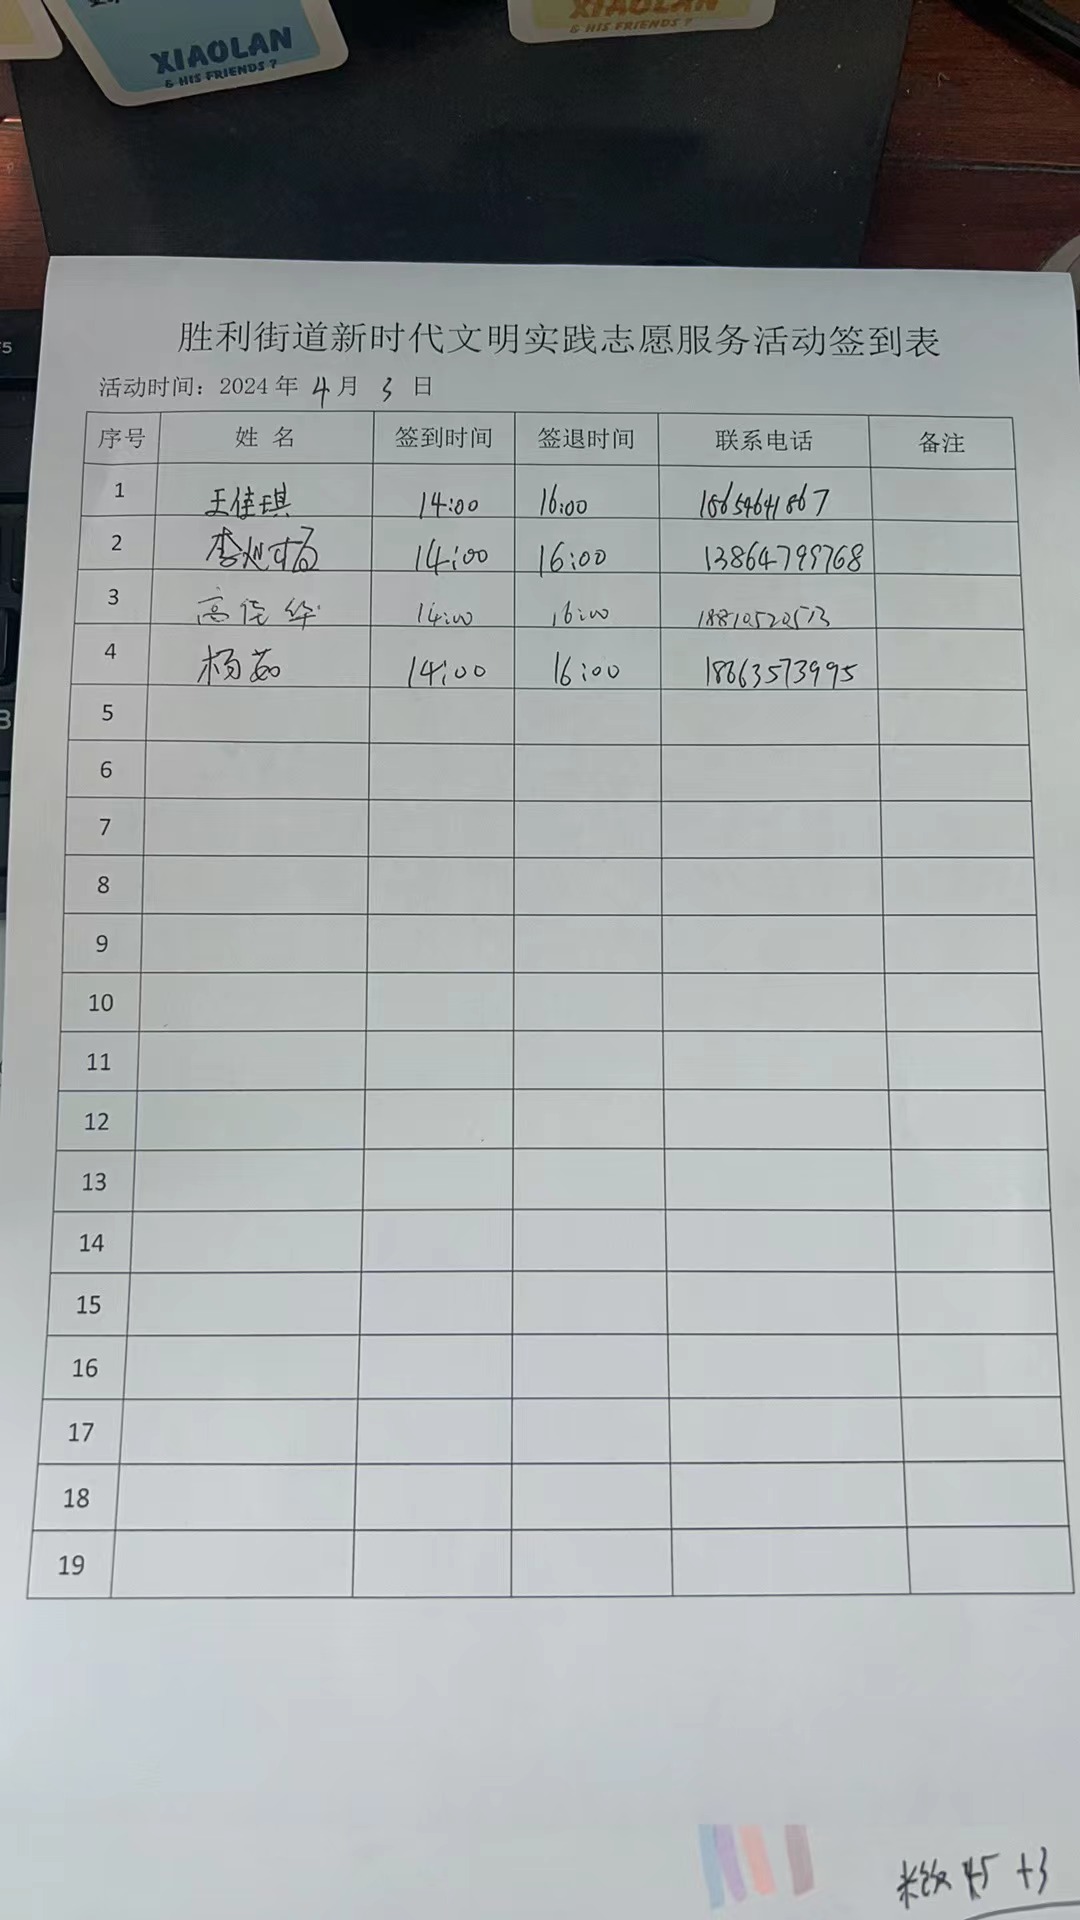 XIAOLAN
& HIS FRIENDS ?
XIAOLAN
& HIS FRIENDS ?
F5
胜利街道新时代文明实践志愿服务活动签到表
活动时间：2024年 4月 3日
序号 姓名 签到时间 签退时间 联系电话 备注
1 王佳琪 14:00 16:00 18654641867
2 李 14:00 16:00 13864799768
3 高佳华 14:00 16:00 18810520513
4 杨茹 14:00 16:00 18663573995
5
6
7
8
9
10
11
12
13
14
15
16
17
18
19
+3